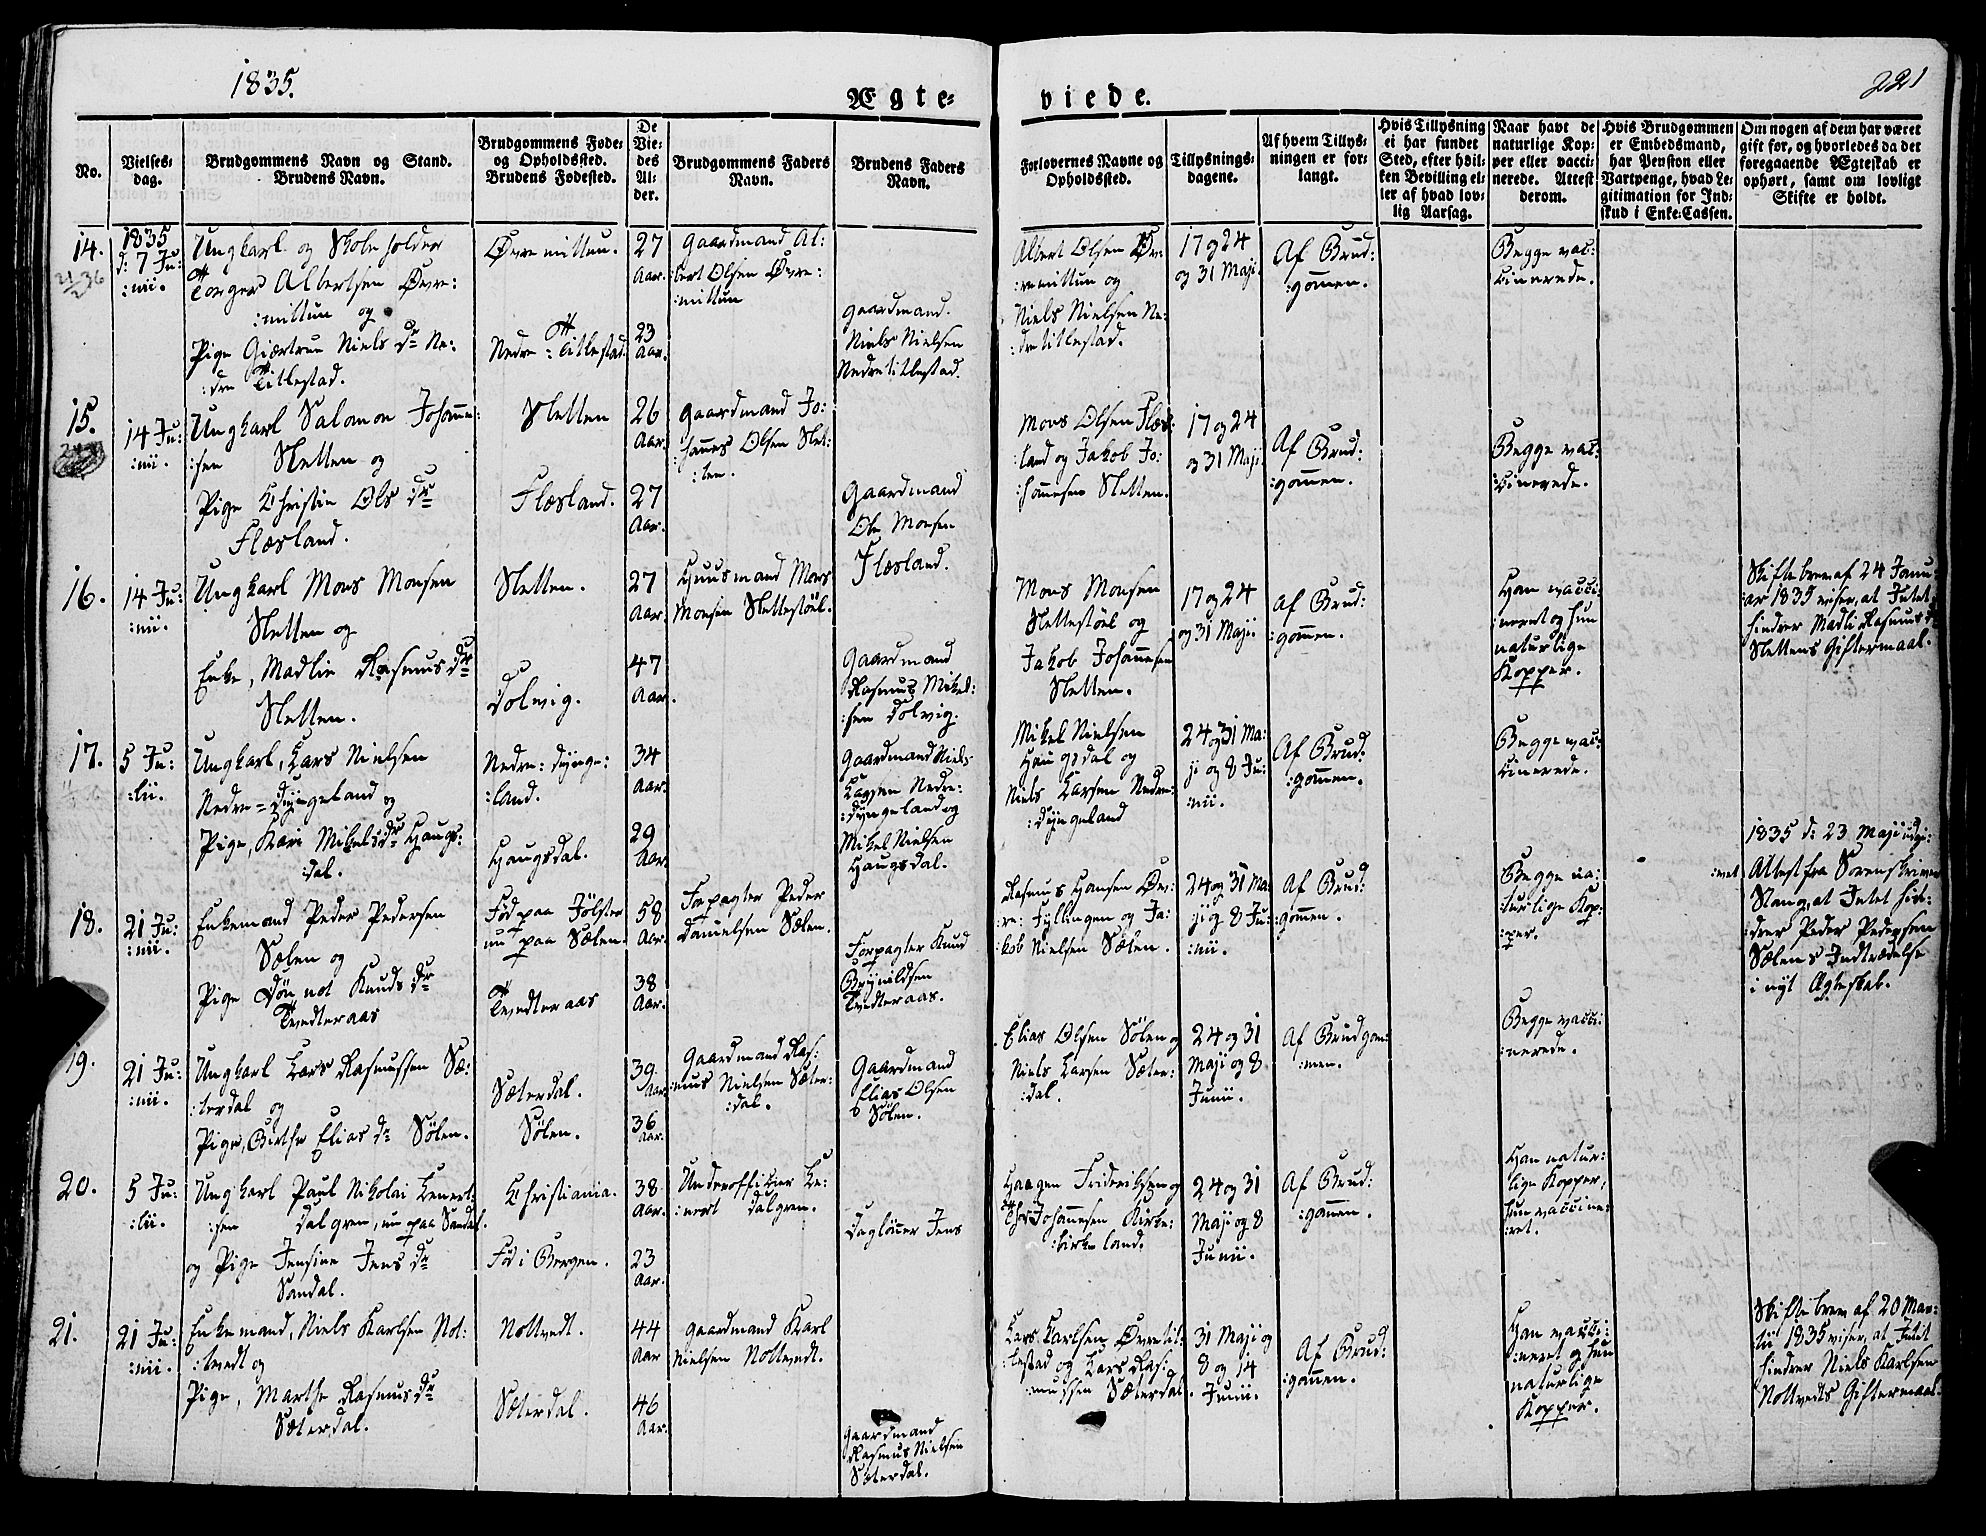 1835.
221
Ægte-
viede.
No.
Vielses-
dag.
Brudgommens Navn og Stand.
Brudens Navn.
Brudgommens Føde-
og Opholdssted.
Brudens Fødested.
De
Vie-
des
Al-
der.
Brudgommens Faders
Navn.
Brudens Faders
Navn.
Forlovernes Navne og
Opholdssted.
Tillysnings-
dagene.
Af hvem Tillys-
ningen er for-
langt.
Hvis Tillysning
ei har fundet
Sted, efter hvil-
ken Bevilling el-
ler af hvad lov-
lig Aarsag.
Naar havt de
naturlige Kop-
per eller vacci-
nerede. Attest
derom.
Hvis Brudgommen
er Embedsmand,
har Pension eller
Vartpenge, hvad Le-
gitimation for Ind-
skud i Enke-Cassen.
Om nogen af dem har været
gift før, og hvorledes da det
foregaaende Ægteskab er
ophørt, samt om lovligt
Skifte er holdt.
14.
1835
d: 7 Ju:
:nii.
Ungkarl og Skoleholder
Torger Albertsen Øvre:
:mittun og
Pige Giærtrue Niels Dr Ne:
:dre Titlestad.
Øvre mittun.
Nedre: Titlestad.
27
Aar.
23
Aar.
Gaardmand Al:
bert Olsen Øvre:
:mittun
Gaardmand.
Niels Nielsen
Nedretitlestad.
Albert Olsen Øv:
:remittun og
Niels Nielsen Ne:
:dretitlestad.
17 og 24
og 31 Maji.
Af Brud:
:gommen.
Begge vac:
:cinerede.
15.
14 Ju:
:nii.
Ungkarl Salomon Johanne:
:sen Sletten og
Pige Christie Ols Dr
Flesland.
Sletten
Flesland.
26
Aar.
27
Aar.
Gaardmand Jo:
:hannes Olsen Slet:
:ten.
Gaardmand
Ole Monsen
Flesland.
Mons Olsen Fles:
:land og Jakob Jo:
:hannesen Sletten.
17 og 24
og 31 Maji
Af Brud:
:gommen.
Begge vac:
:cinerede.
16.
14 Ju:
:nii.
Ungkarl Mons Monsen
Sletten og
Enke, Madlie Rasmus Dr
Sletten.
Sletten.
Dolvig.
27
Aar.
47
Aar.
Huusmand Mons
Monsen Slettestøel.
Gaardmand
Rasmus Mikel:
:sen Dolvig.
Mons Monsen
Slettestøel og
Jakob Johannesen
Sletten.
17 og 24
og 31 Maji.
Af Brud:
:gommen.
Han vacci:
:neret og hun
naturlige
Kopper.
Skiftebrev af 24 Janu:
:ar 1835 viser, at Intet
hindrer Madli Rasmus Dr
Slettens Giftermaal.
17.
5 Ju:
:lii.
Ungkarl, Lars Nielsen
Nedre= Dyngeland og
Pige, Kari Mikels Dr Haugs:
:dal.
Nedre: Dynge:
:land.
Haugsdal.
34
Aar.
29
Aar.
Gaardmand Niels
Larsen Nedre:
:Dyngeland og
Mikel Nielsen
Haugsdal.
Mikel Nielsen
Haugsdal og
Niels Larsen Nedre:
:Dyngeland
24 og 31 Ma:
:ji og 8 Ju:
:nii.
Af Brud:
:gommen.
Begge vac:
:cinerede.
18.
21 Ju:
:nii.
Enkemand Peder Pedersen
Sælen og
Pige Dønnot Knuds Dr
Tvedteraas
Fød paa Jølster
nu paa Sælen.
Tvedteraas
58
Aar.
38
Aar.
Forpagter Peder
Danielsen Sælen.
Forpagter Knud
Brynildsen
Tvedteraas.
Rasmus Hansen Øv:
:re: Fyllingen og Ja:
:kob Nielsen Sælen.
24 og 31 Ma:
:ji og 8 Ju:
:nii.
Af Brud:
:gommen.
Begge na:
:turlige Kop:
:per.
1835 d: 23 Maji udgi:
:vet Attest fra Sorenskriver
Stang, at Intet hin:
:drer Peder Pedersen
Sælens Indtrædelse
i nyt Ægteskab.
19.
21 Ju:
:nii.
Ungkarl Lars Rasmussen Sæ:
:terdal og
Pige, Birthe Elias Dr Sølen.
Sæterdal.
Sølen.
39
Aar.
36
Aar.
Gaardmand Ras:
:mus Nielsen Sæter:
:dal.
Gaardmand
Elias Olsen
Sølen.
Elias Olsen Sølen og
Niels Larsen Sæter:
:dal.
24 og 31
Maji og 8
Junii.
Af Brudgom:
:men.
Begge vacci:
:nerede.
20.
5 Ju:
:lii.
Ungkarl Paul Nikolai Lenert:
:sen Dalgren, nu paa Sandal.
og Pige Jensine Jens Dr
Sandal.
Christiania.
Fød i Bergen.
38
Aar.
23
Aar.
Underofficier Le:
:nert Dalgren.
Dagløner Jens
Haagen Frideriksen og
Chr Johannesen Kirke:
:birkeland.
24 og 31
Maji og 8
Junii.
Af Brud:
:gommen.
Han natur:
:lige Kopper,
hun vaccine:
:ret.
21.
21 Ju:
:nii.
Enkemand, Niels Karlsen Not:
:tvedt og
Pige, Marthe Rasmus Dr
Sæterdal.
Nottvedt.
Sæterdal.
44
Aar
46
Aar.
Gaardmand Karl
Nielsen Nottvedt.
Gaardmand
Rasmus Nielsen
Sæterdal.
Lars Karlsen Øvretit:
:lestad og Lars Ras:
:mussen Sæterdal.
31 Maji og
8 og 14
Junii.
Af Brud:
:gommen.
Han vacci:
:neret og hun
naturlige
Kopper.
Skiftebrev af 20 Mar:
:tii 1835 viser, at Intet
hindrer Niels Karlsen
Nottvedts Giftermaal.